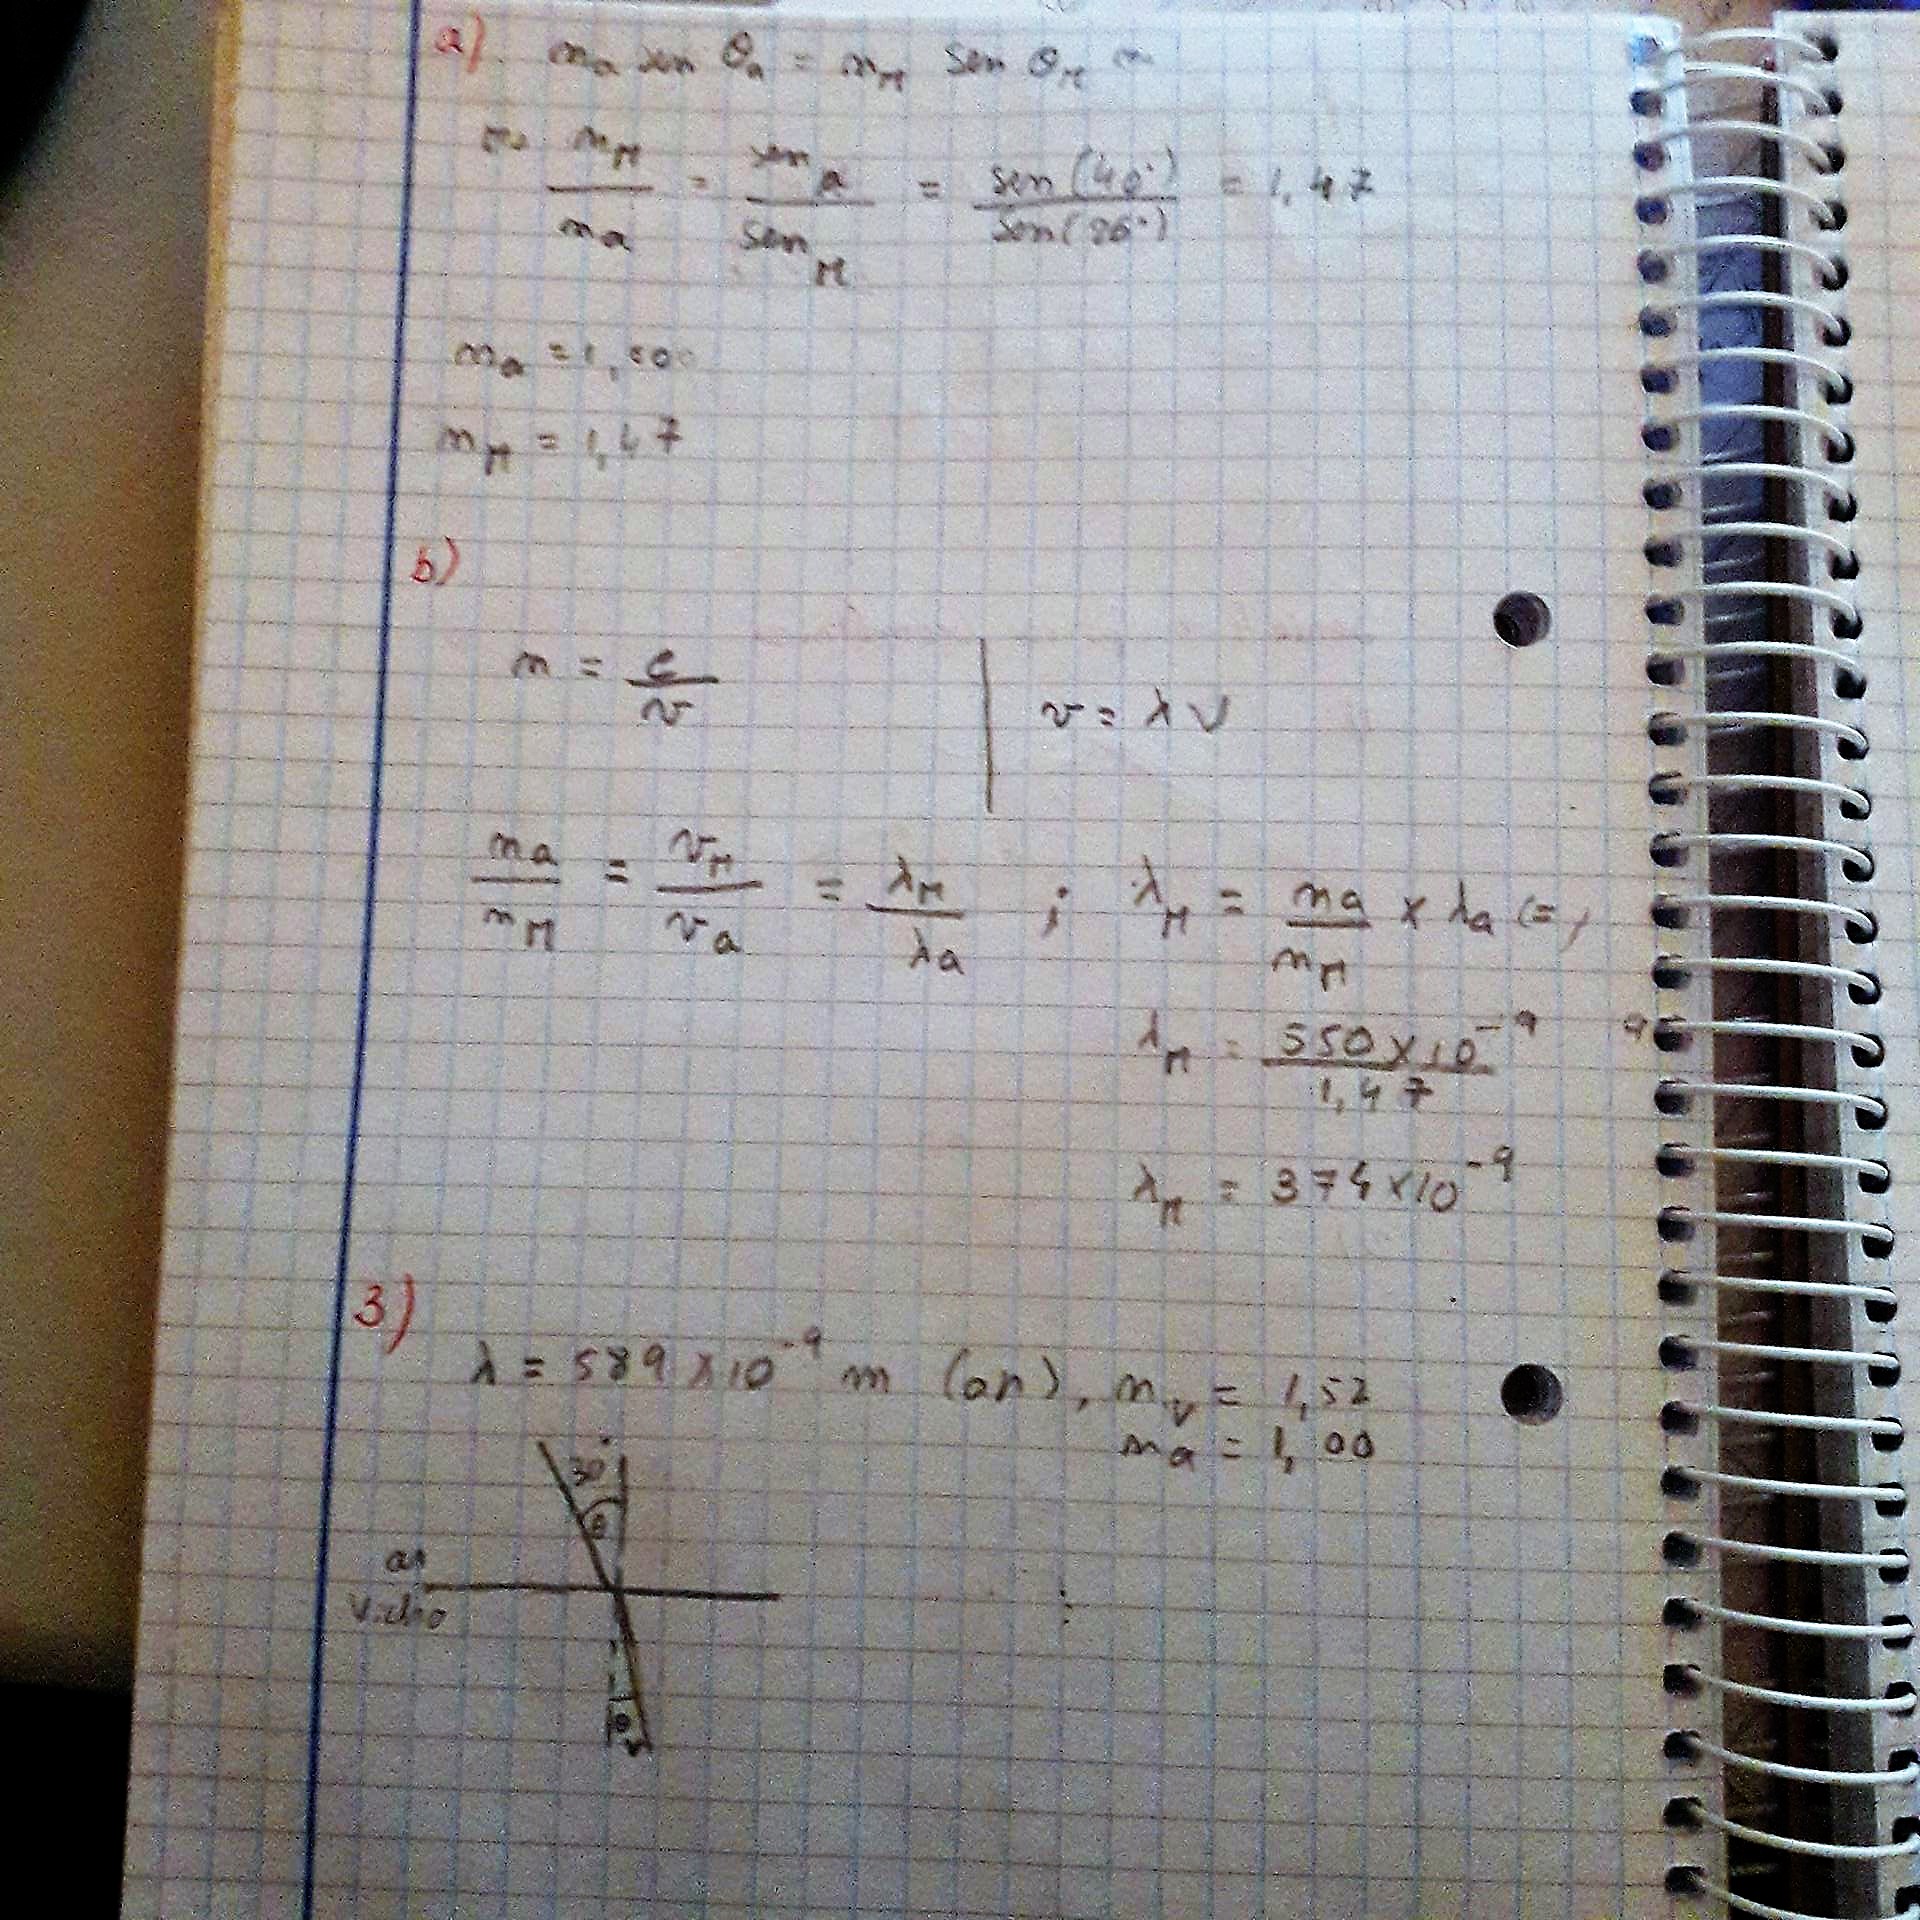 a). n_a sen θ_a = n_M sen θ_M ⇔
⇔ n_M / n_a = sen_a / sen_M = sen(40°) / sen(26°) = 1,47
n_a = 1,000
n_M = 1,47
b)
n = c / v | v = λν
n_a / n_M = v_M / v_a = λ_M / λ_a ; λ_M = n_a / n_M × λ_a (=)
λ_M = 550×10^-9 / 1,47
λ_M = 374×10^-9
3)
λ = 589×10^-9 m (ar), n_v = 1,52
n_a = 1,00
30°
θ
ar
Vidro
θ_v